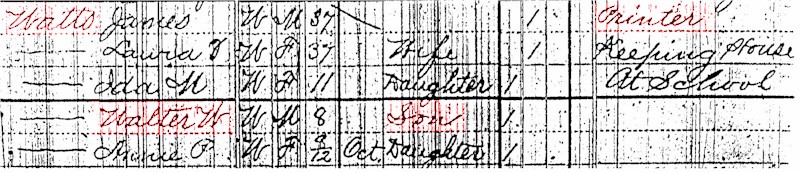 Watts James W M 37 1 Printer
Laura V W F 37 Wife 1 Keeping House
Ida M W F 11 Daughter 1 At School
Walter W W M 8 Son 1
Annie P. W F 8/12 Oct Daughter 1